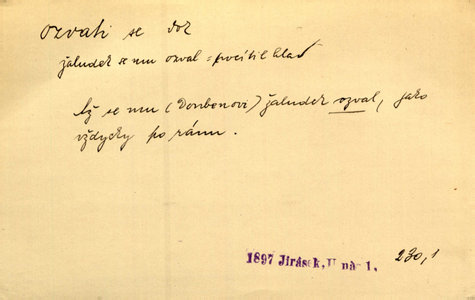 ozvati se dok
žaludek se mu ozval = pocítil hlad
Až se mu (Doubenovi) žaludek ozval, jako
vždycky po ránu.
1897 Jirásek, U nás 1, 230,1